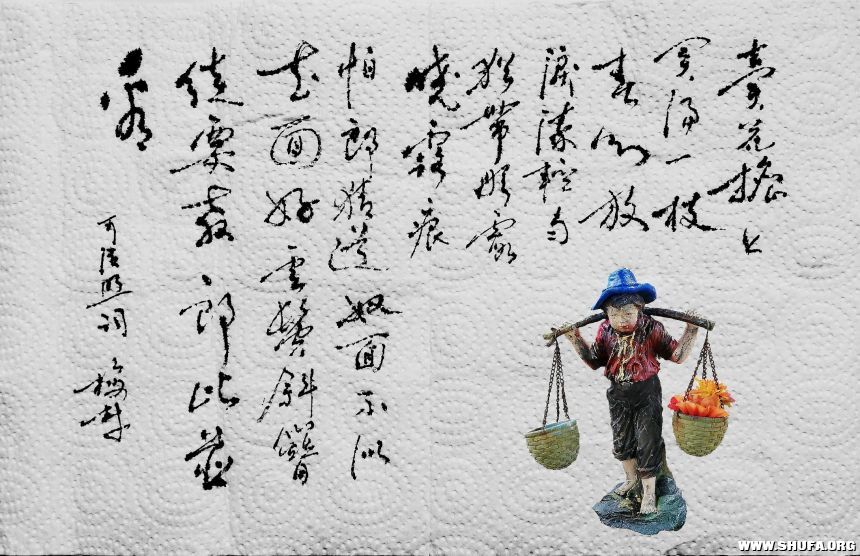 賣花擔上
買得一枝
春欲放
淚染輕匀
猶帶彤霞
曉露痕
怕郎猜道奴面不似
花面好雲鬢斜簪
徒要教郎比並
看
李清照詞
WWW.SHUFA.ORG